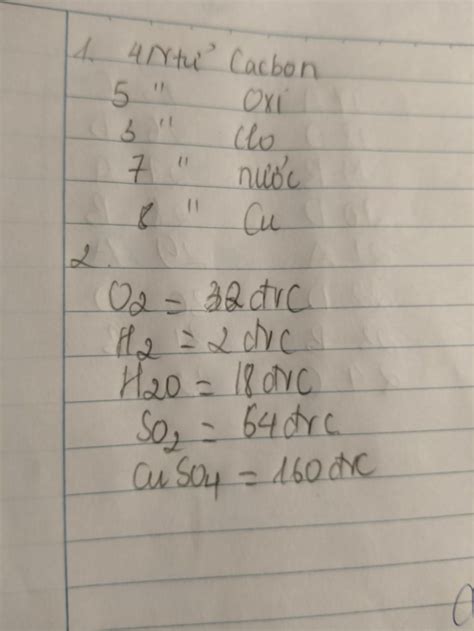 1. 4 Ntử Cacbon
5 " Oxi
3 " Clo
7 " nước
8 " Cu
2.
O2 = 32 đvC
H2 = 2 đvC
H2O = 18 đvC
SO2 = 64 đvC
CuSO4 = 160 đvC